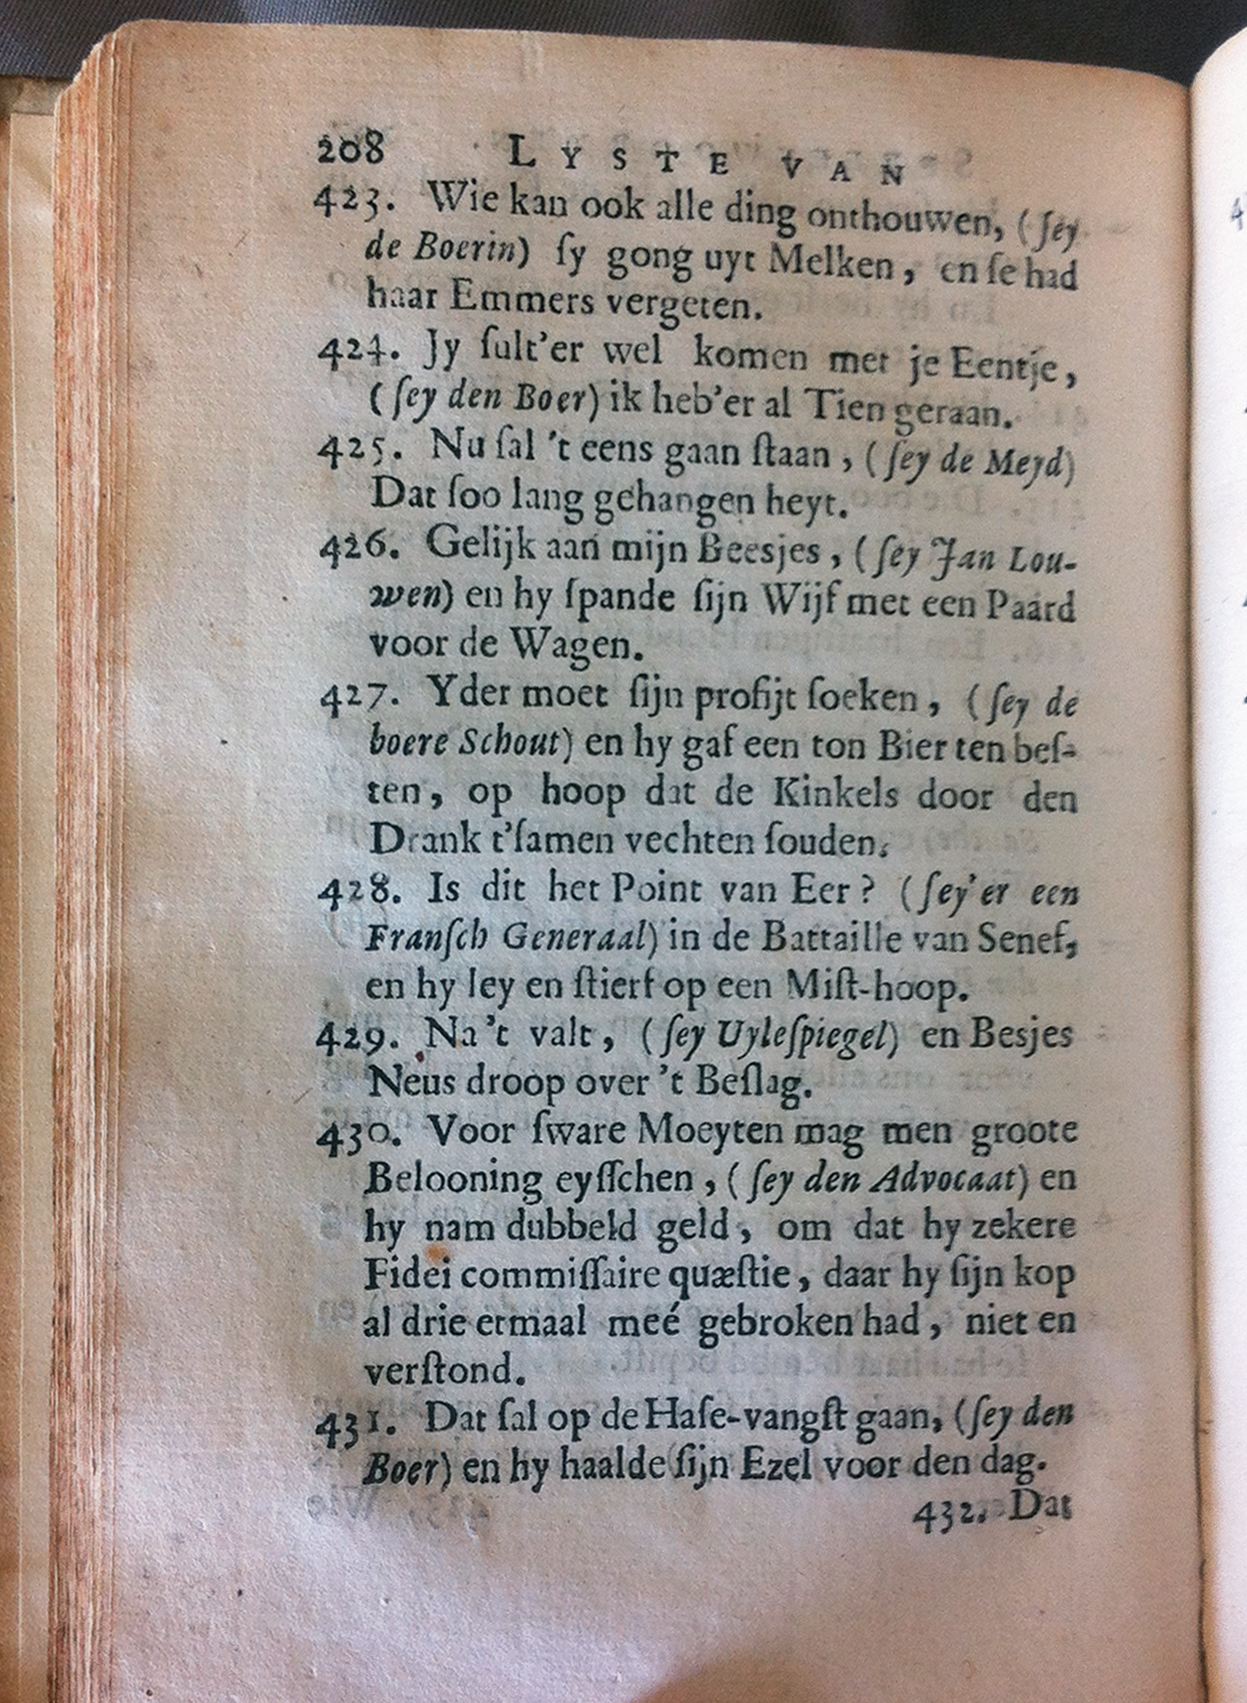 208 LYSTE VAN
423. Wie kan ook alle ding onthouwen, (ſey
de Boerin) ſy gong uyt Melken, en ſe had
haar Emmers vergeten.
424. Jy ſult'er wel komen met je Eentje,
(ſey den Boer) ik heb'er al Tien geraan.
425. Nu ſal 't eens gaan ſtaan, (ſey de Meyd)
Dat ſoo lang gehangen heyt.
426. Gelijk aan mijn Beesjes, (ſey Jan Lou-
wen) en hy ſpande ſijn Wijf met een Paard
voor de Wagen.
427. Yder moet ſijn profijt ſoeken, (ſey de
boere Schout) en hy gaf een ton Bier ten beſ-
ten, op hoop dat de Kinkels door den
Drank t'ſamen vechten ſouden.
428. Is dit het Point van Eer? (ſey'er een
Franſch Generaal) in de Battaille van Senef,
en hy ley en ſtierf op een Miſt-hoop.
429. Na 't valt, (ſey Uyleſpiegel) en Besjes
Neus droop over 't Beſlag.
430. Voor ſware Moeyten mag men groote
Belooning eyſſchen, (ſey den Advocaat) en
hy nam dubbeld geld, om dat hy zekere
Fidei commiſſaire quæſtie, daar hy ſijn kop
al drie etmaal meé gebroken had, niet en
verſtond.
431. Dat ſal op de Haſe-vangſt gaan, (ſey den
Boer) en hy haalde ſijn Ezel voor den dag.
432. Dat